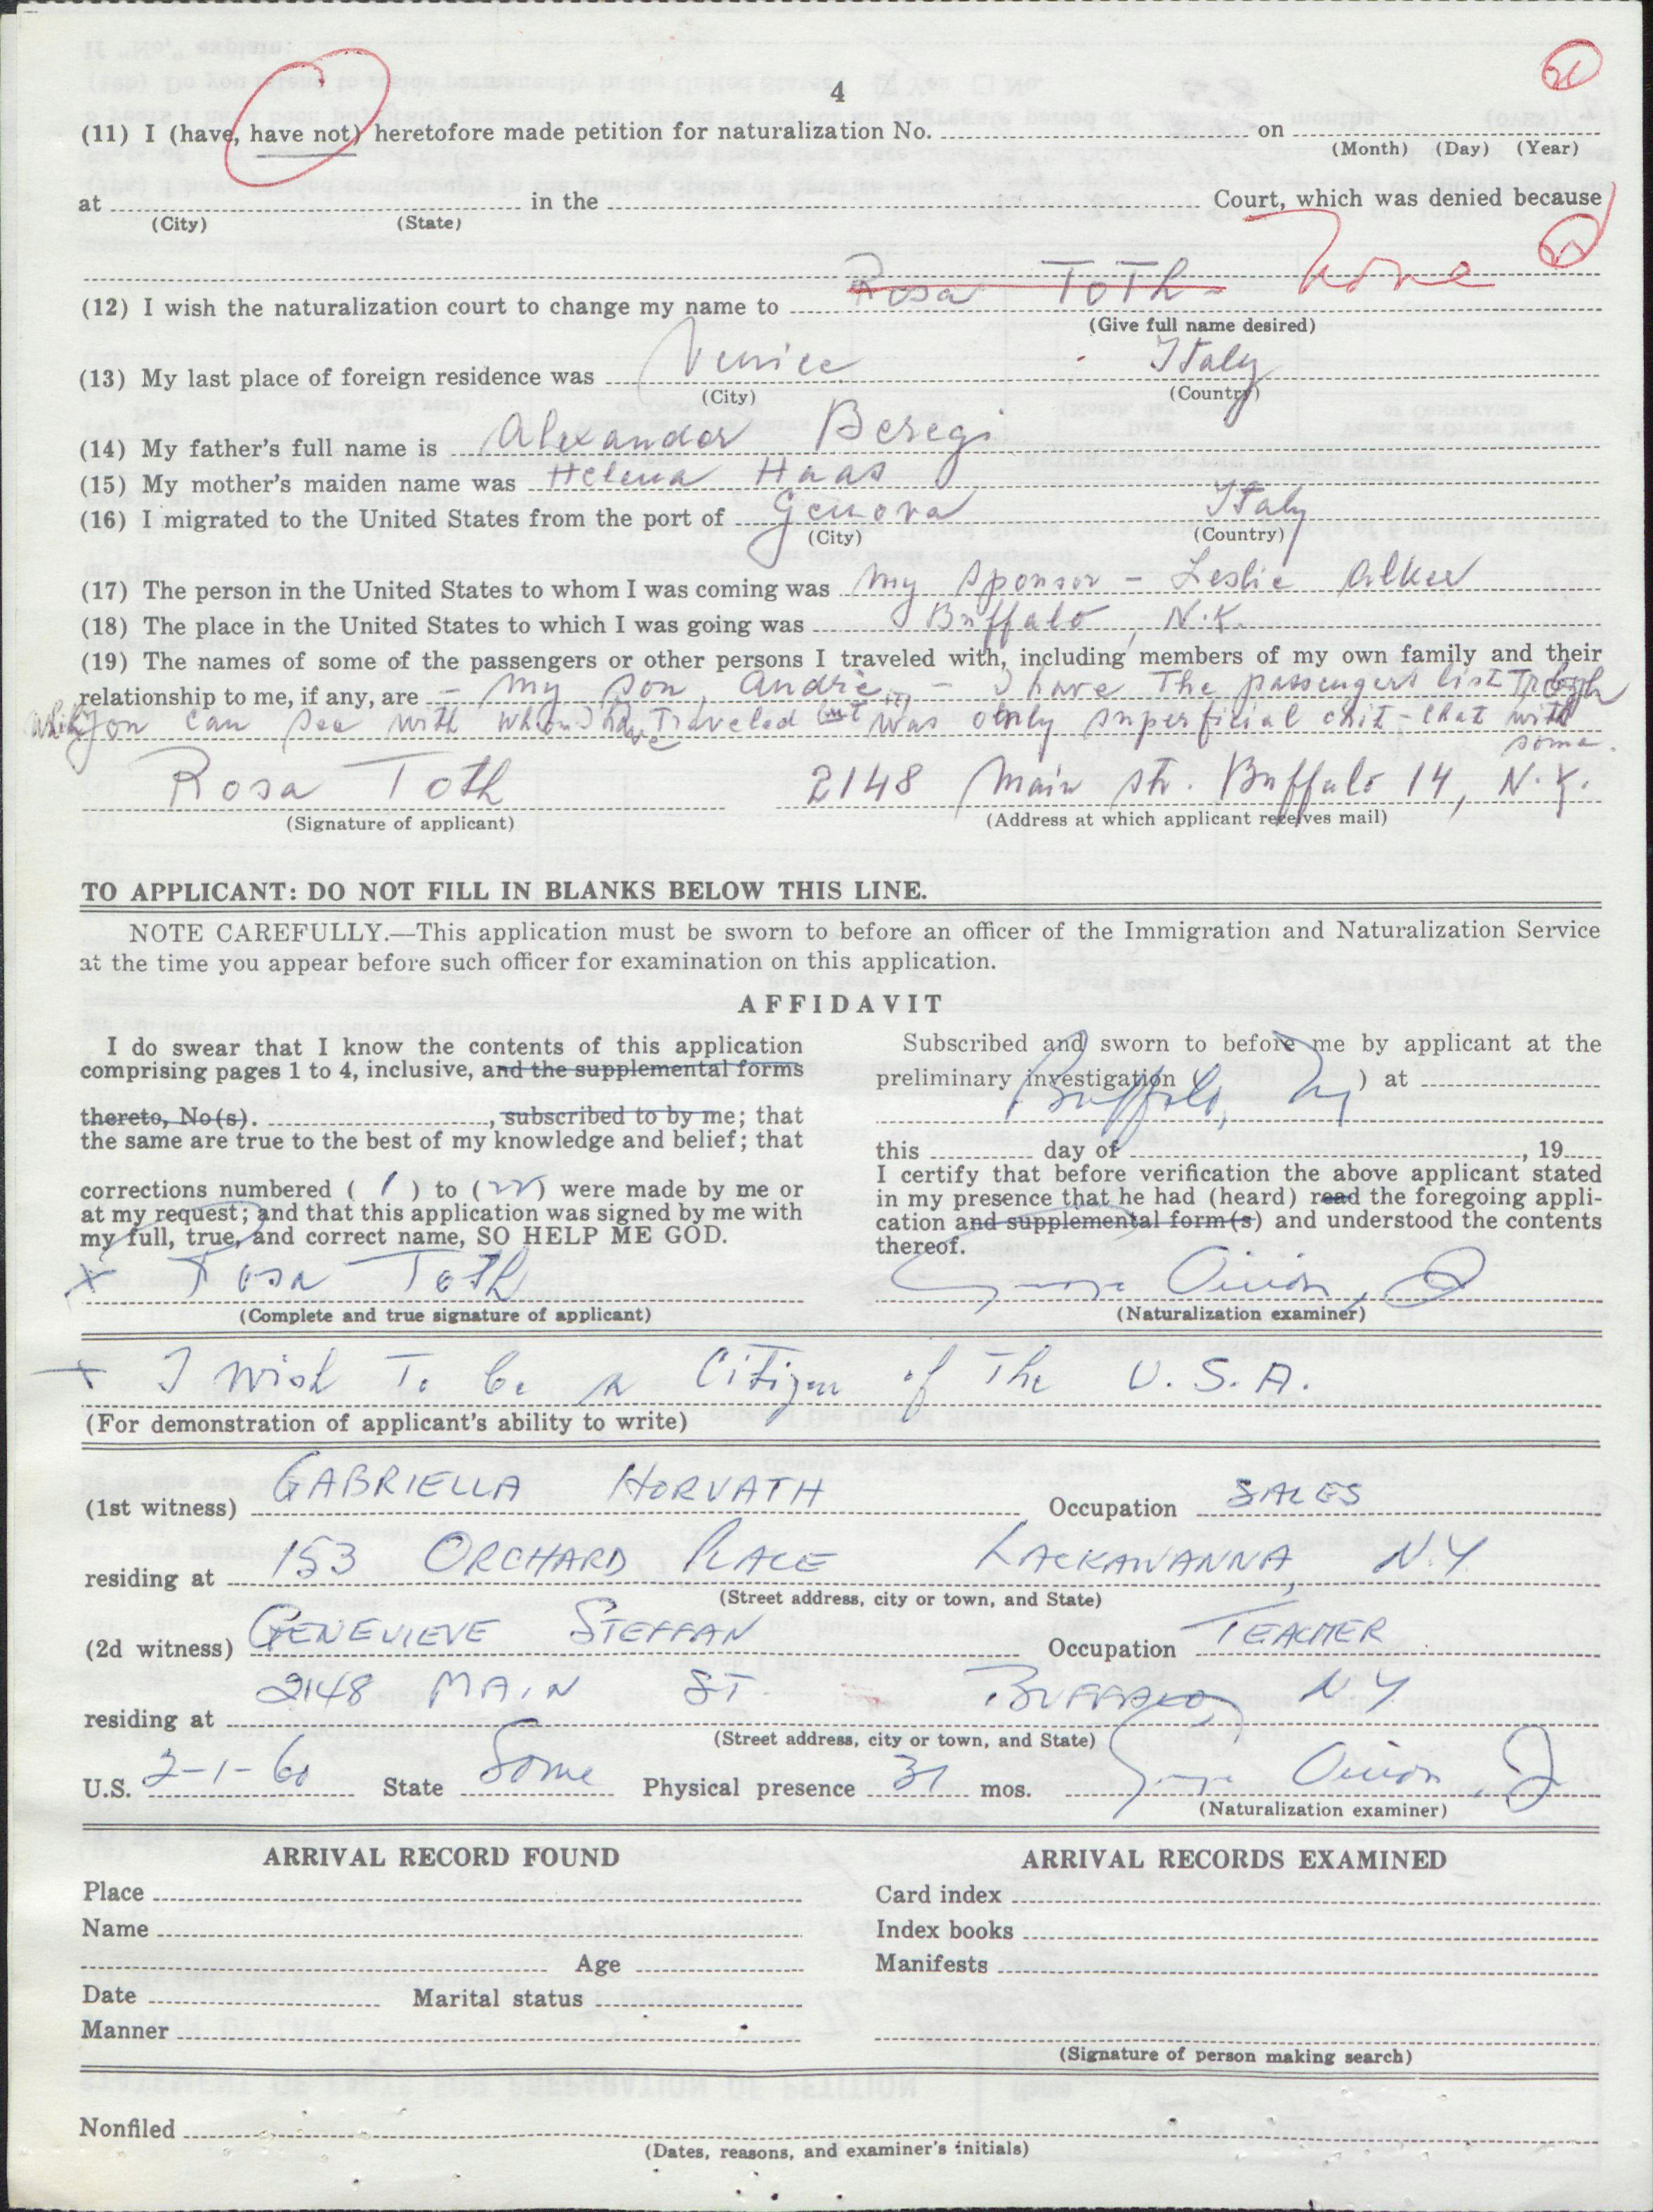 4
(11) I (have, have not) heretofore made petition for naturalization No. on
(Month) (Day) (Year)
at in the Court, which was denied because
(City) (State)
(12) I wish the naturalization court to change my name to Rosa Toth - None
(Give full name desired)
(13) My last place of foreign residence was Venice Italy
(City) (Country)
(14) My father's full name is Alexander Beregi
(15) My mother's maiden name was Helena Haas
(16) I migrated to the United States from the port of Genova Italy
(City) (Country)
(17) The person in the United States to whom I was coming was my sponsor - Leslie
(18) The place in the United States to which I was going was Buffalo, N.Y.
(19) The names of some of the passengers or other persons I traveled with, including members of my own family and their
relationship to me, if any, are - my son, Andre, - I have the passengers list
you can see with whom I have traveled but it was only superficial chit-chat with
some.
Rosa Toth 2148 Main str. Buffalo 14, N.Y.
(Signature of applicant) (Address at which applicant receives mail)
TO APPLICANT: DO NOT FILL IN BLANKS BELOW THIS LINE.
NOTE CAREFULLY.—This application must be sworn to before an officer of the Immigration and Naturalization Service
at the time you appear before such officer for examination on this application.
AFFIDAVIT
I do swear that I know the contents of this application
comprising pages 1 to 4, inclusive, and the supplemental forms
thereto, No(s). , subscribed to by me; that
the same are true to the best of my knowledge and belief; that
corrections numbered ( 1 ) to ( ) were made by me or
at my request; and that this application was signed by me with
my full, true, and correct name, SO HELP ME GOD.
x Rosa Toth
(Complete and true signature of applicant)
Subscribed and sworn to before me by applicant at the
preliminary investigation ( ) at
Buffalo, Ny
this day of , 19
I certify that before verification the above applicant stated
in my presence that he had (heard) read the foregoing appli-
cation and supplemental form(s) and understood the contents
thereof.
(Naturalization examiner)
x I wish To be a Citizen of The U.S.A.
(For demonstration of applicant's ability to write)
(1st witness) GABRIELLA HORVATH Occupation SALES
residing at 153 ORCHARD PLACE LACKAWANNA, N.Y
(Street address, city or town, and State)
(2d witness) GENEVIEVE STEFFAN Occupation TEACHER
residing at 2148 MAIN ST. BUFFALO, NY
(Street address, city or town, and State)
U.S. 2-1-60 State Same Physical presence 31 mos.
(Naturalization examiner)
ARRIVAL RECORD FOUND
Place
Name
Age
Date Marital status
Manner
ARRIVAL RECORDS EXAMINED
Card index
Index books
Manifests
(Signature of person making search)
Nonfiled
(Dates, reasons, and examiner's initials)